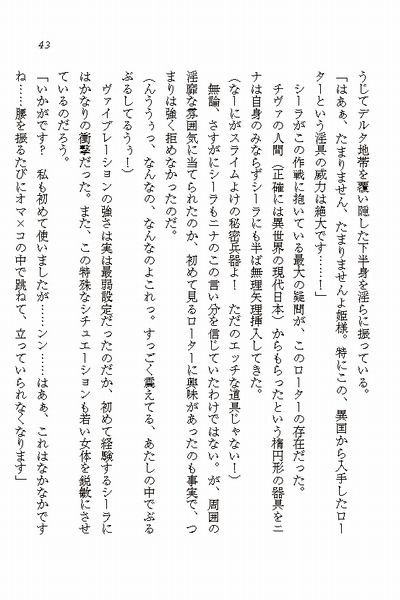 43
うじてデルタ地帯を覆い隠した下半身を淫らに振っている。
「はあぁ、たまりません、たまりませんよ姫様。特にこの、異国から入手したロー
ターという淫具の威力は絶大です……！」
シーラがこの作戦に抱いている最大の疑問が、このローターの存在だった。
チヴァの人間（正確には異世界の現代日本）からもらったという楕円形の器具をニ
ナは自身のみならずシーラにも半ば無理矢理挿入してきた。
（なーにがスライムよけの秘密兵器よ！　ただのエッチな道具じゃない！）
無論、さすがにシーラもニナのこの言い分を信じていたわけではない。が、周囲の
淫靡な雰囲気に当てられたのか、初めて見るローターに興味があったのも事実で、つ
まりは強く拒めなかったのだ。
（んううぅっ、なんなの、なんなのよこれっ。すっごく震えてる、あたしの中でぶる
ぶるしてるうぅ！）
ヴァイブレーションの強さは実は最弱設定だったのだが、初めて経験するシーラに
はかなりの衝撃だった。また、この特殊なシチュエーションも若い女体を鋭敏にさせ
ているのだろう。
「いかがです？　私も初めて使いましたが……ンン……はあぁ、これはなかなかです
ね……腰を振るたびにオマ×コの中で跳ねて、立っていられなくなります」